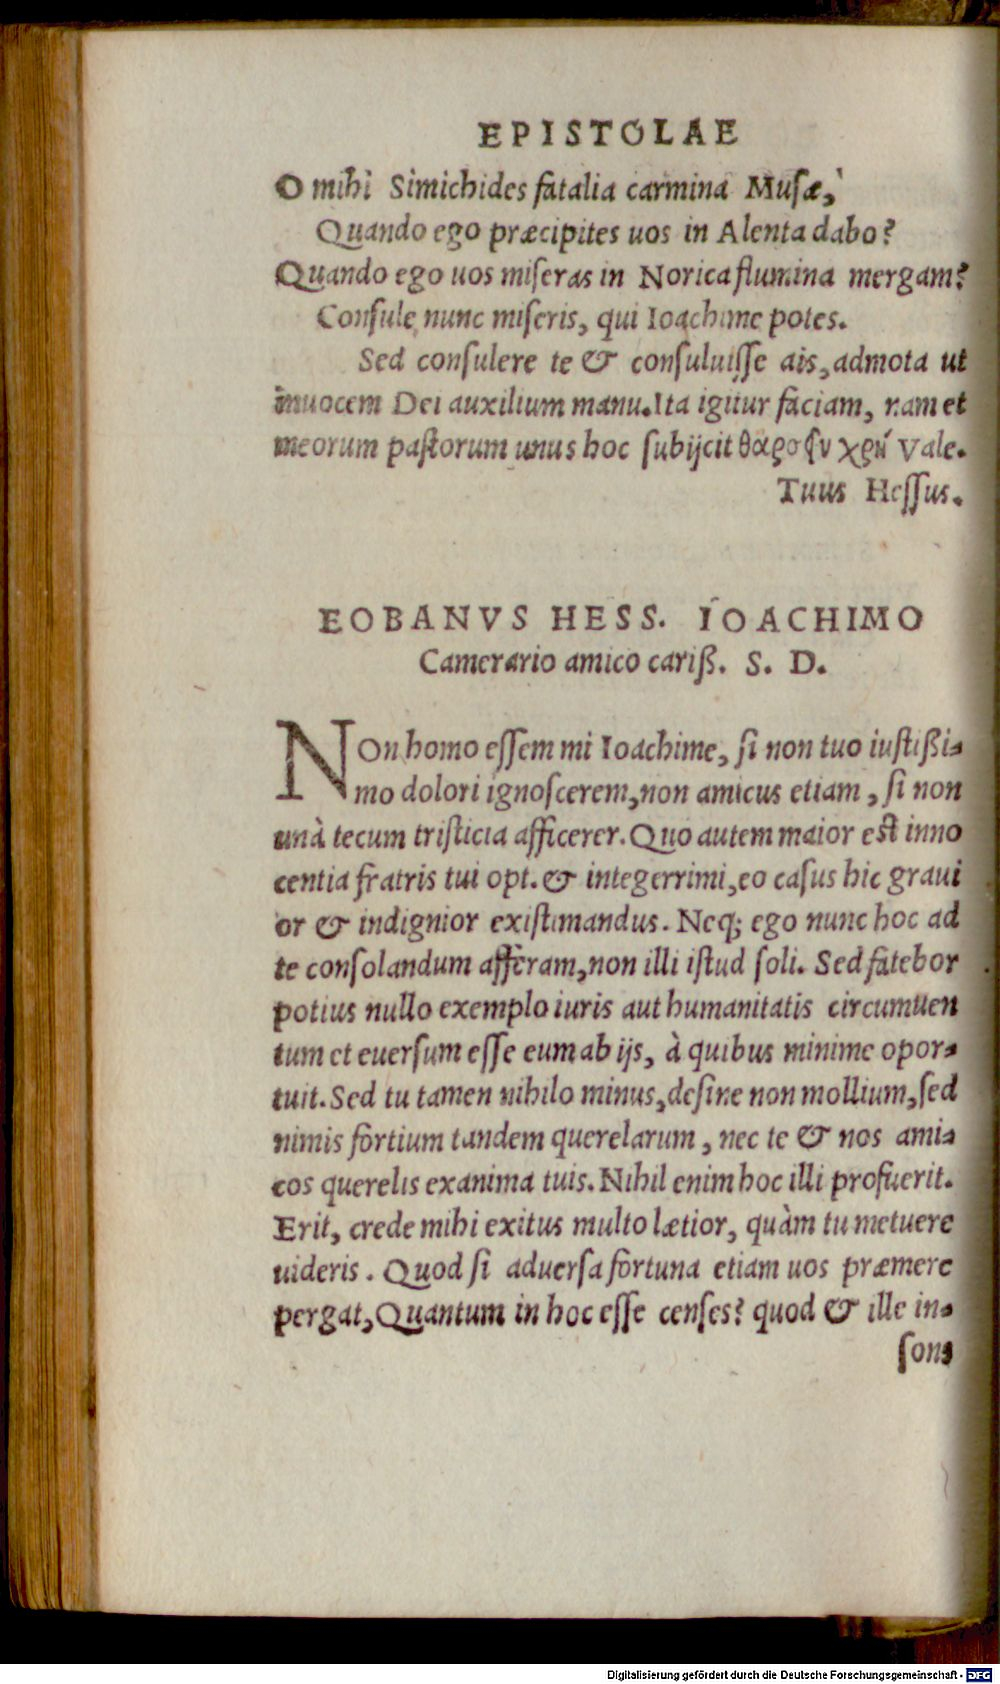 EPISTOLAE
O mihi Simichides fatalia carmina Musæ,
Quando ego præcipites uos in Alenta dabo?
Quando ego uos miseras in Norica flumina mergam?
Consule nunc miseris, qui Ioachime potes.
Sed consulere te & consuluisse ais, admota ut
inuocem Dei auxilium manu. Ita igitur faciam, nam et
meorum pastorum unus hoc subijcit θαρσεῖν χρή Vale.
Tuus Hessus.
EOBANVS HESS. IOACHIMO
Camerario amico cariß. S. D.
NOn homo essem mi Ioachime, si non tuo iustißi-
mo dolori ignoscerem, non amicus etiam, si non
unà tecum tristicia afficerer. Quo autem maior est inno
centia fratris tui opt. & integerrimi, eo casus hic graui
or & indignior existimandus. Neq; ego nunc hoc ad
te consolandum afferam, non illi istud soli. Sed fatebor
potius nullo exemplo iuris aut humanitatis circumuen
tum et euersum esse eum ab ijs, à quibus minime opor-
tuit. Sed tu tamen nihilo minus, desine non mollium, sed
nimis fortium tandem querelarum, nec te & nos ami-
cos querelis exanima tuis. Nihil enim hoc illi profuerit.
Erit, crede mihi exitus multo lætior, quàm tu metuere
uideris. Quod si aduersa fortuna etiam uos præmere
pergat, Quantum in hoc esse censes? quod & ille in-
sons
Digitalisierung gefördert durch die Deutsche Forschungsgemeinschaft - DFG